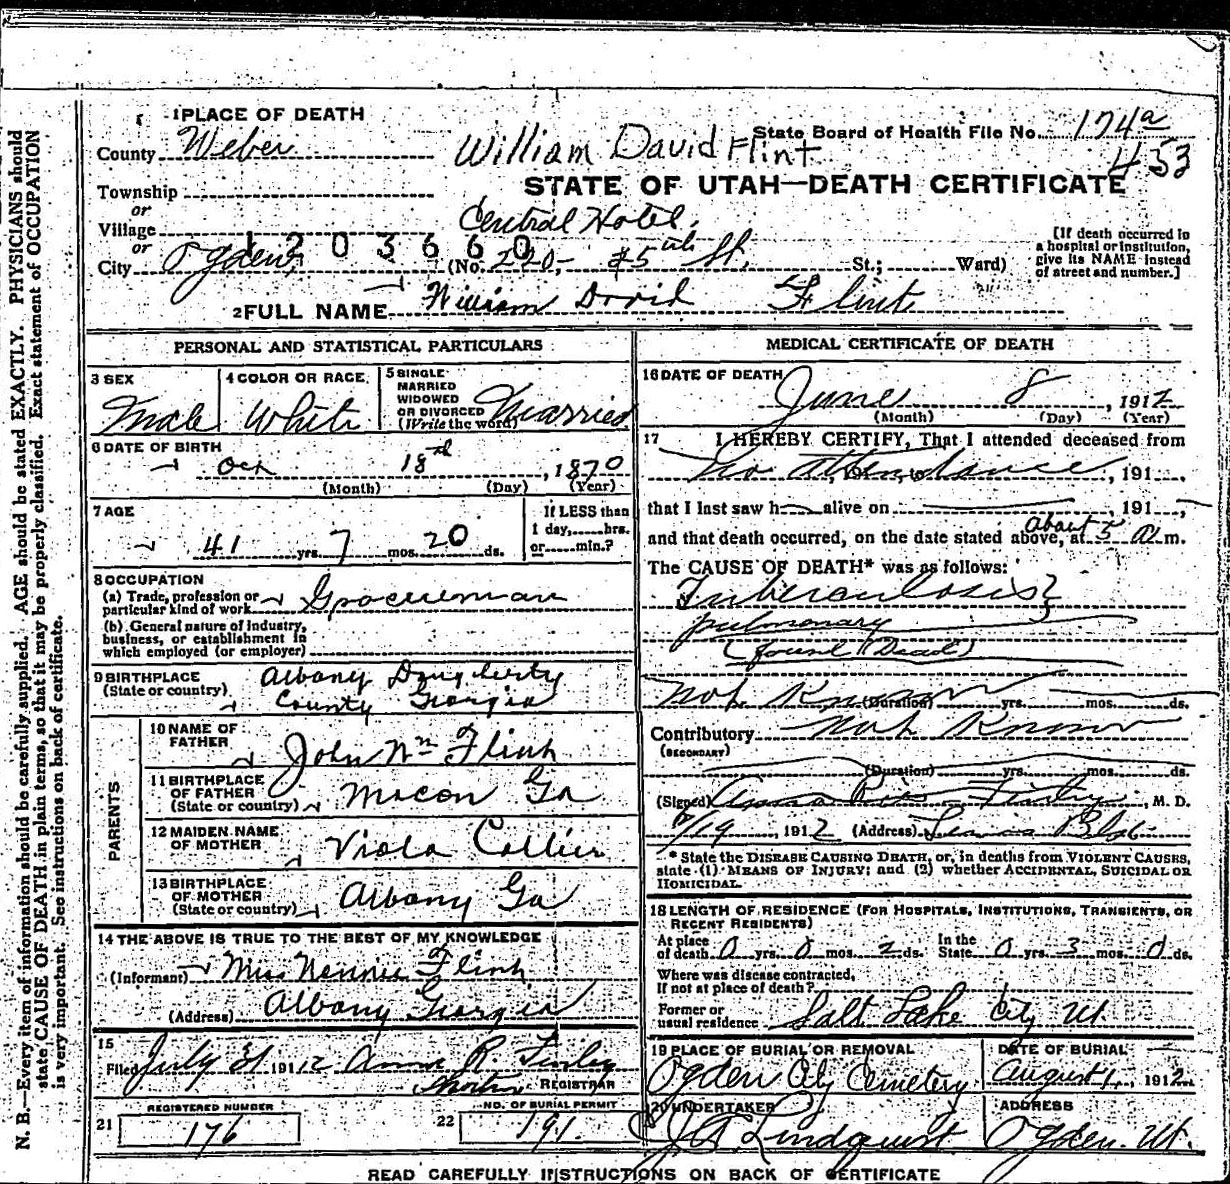 1 PLACE OF DEATH
State Board of Health File No. 174a
County Weber
William David Flint
453
STATE OF UTAH—DEATH CERTIFICATE
Township
or
Village
or
Central Hotel,
1203660
City Ogden, (No. 220- 25th St. St.; Ward)
[If death occurred in
a hospital or institution,
give its NAME instead
of street and number.]
2 FULL NAME William David Flint
PERSONAL AND STATISTICAL PARTICULARS
3 SEX
Male
4 COLOR OR RACE
White
5 SINGLE
MARRIED
WIDOWED
OR DIVORCED
(Write the word)
Married
6 DATE OF BIRTH
Oct 18th, 1870
(Month) (Day) (Year)
7 AGE
41 yrs. 7 mos. 20 ds.
If LESS than
1 day, hrs.
or min.?
8 OCCUPATION
(a) Trade, profession or
particular kind of work Groceryman
(b) General nature of industry,
business, or establishment in
which employed (or employer)
9 BIRTHPLACE
(State or country)
Albany Dougherty
County Georgia
PARENTS
10 NAME OF
FATHER
John Wm Flint
11 BIRTHPLACE
OF FATHER
(State or country) Macon Ga
12 MAIDEN NAME
OF MOTHER
Viola Collier
13 BIRTHPLACE
OF MOTHER
(State or country) Albany Ga
14 THE ABOVE IS TRUE TO THE BEST OF MY KNOWLEDGE
(Informant) Miss Nennie Flint
(Address) Albany Georgia
15
Filed July 31 1912 Anna R. Finley
REGISTRAR
REGISTERED NUMBER
21 176
NO. OF BURIAL PERMIT
22 191
MEDICAL CERTIFICATE OF DEATH
16 DATE OF DEATH
June 8, 1912
(Month) (Day) (Year)
17 I HEREBY CERTIFY, That I attended deceased from
No attendance, 191
that I last saw h alive on , 191 ,
and that death occurred, on the date stated above, at about 5 a m.
The CAUSE OF DEATH* was as follows:
Tuberculosis
pulmonary
(found Dead)
Not Known (Duration) yrs. mos. ds.
Contributory Not Known
(SECONDARY)
(Duration) yrs. mos. ds.
(Signed) Anna Finley, M. D.
6/19, 1912 (Address) Lewis Bld.
* State the DISEASE CAUSING DEATH, or, in deaths from VIOLENT CAUSES,
state (1) MEANS OF INJURY; and (2) whether ACCIDENTAL, SUICIDAL OR
HOMICIDAL.
18 LENGTH OF RESIDENCE (FOR HOSPITALS, INSTITUTIONS, TRANSIENTS, OR
RECENT RESIDENTS)
At place
of death 0 yrs. 0 mos. 2 ds.
In the
State 0 yrs. 3 mos. 0 ds.
Where was disease contracted,
If not at place of death?
Former or
usual residence Salt Lake City Ut
19 PLACE OF BURIAL OR REMOVAL
Ogden City Cemetery
DATE OF BURIAL
August 1, 1912
20 UNDERTAKER
Lindquist
ADDRESS
Ogden Ut.
READ CAREFULLY INSTRUCTIONS ON BACK OF CERTIFICATE
N. B.—Every item of information should be carefully supplied. AGE should be stated EXACTLY. PHYSICIANS should
state CAUSE OF DEATH in plain terms, so that it may be properly classified. Exact statement of OCCUPATION
is very important. See instructions on back of certificate.